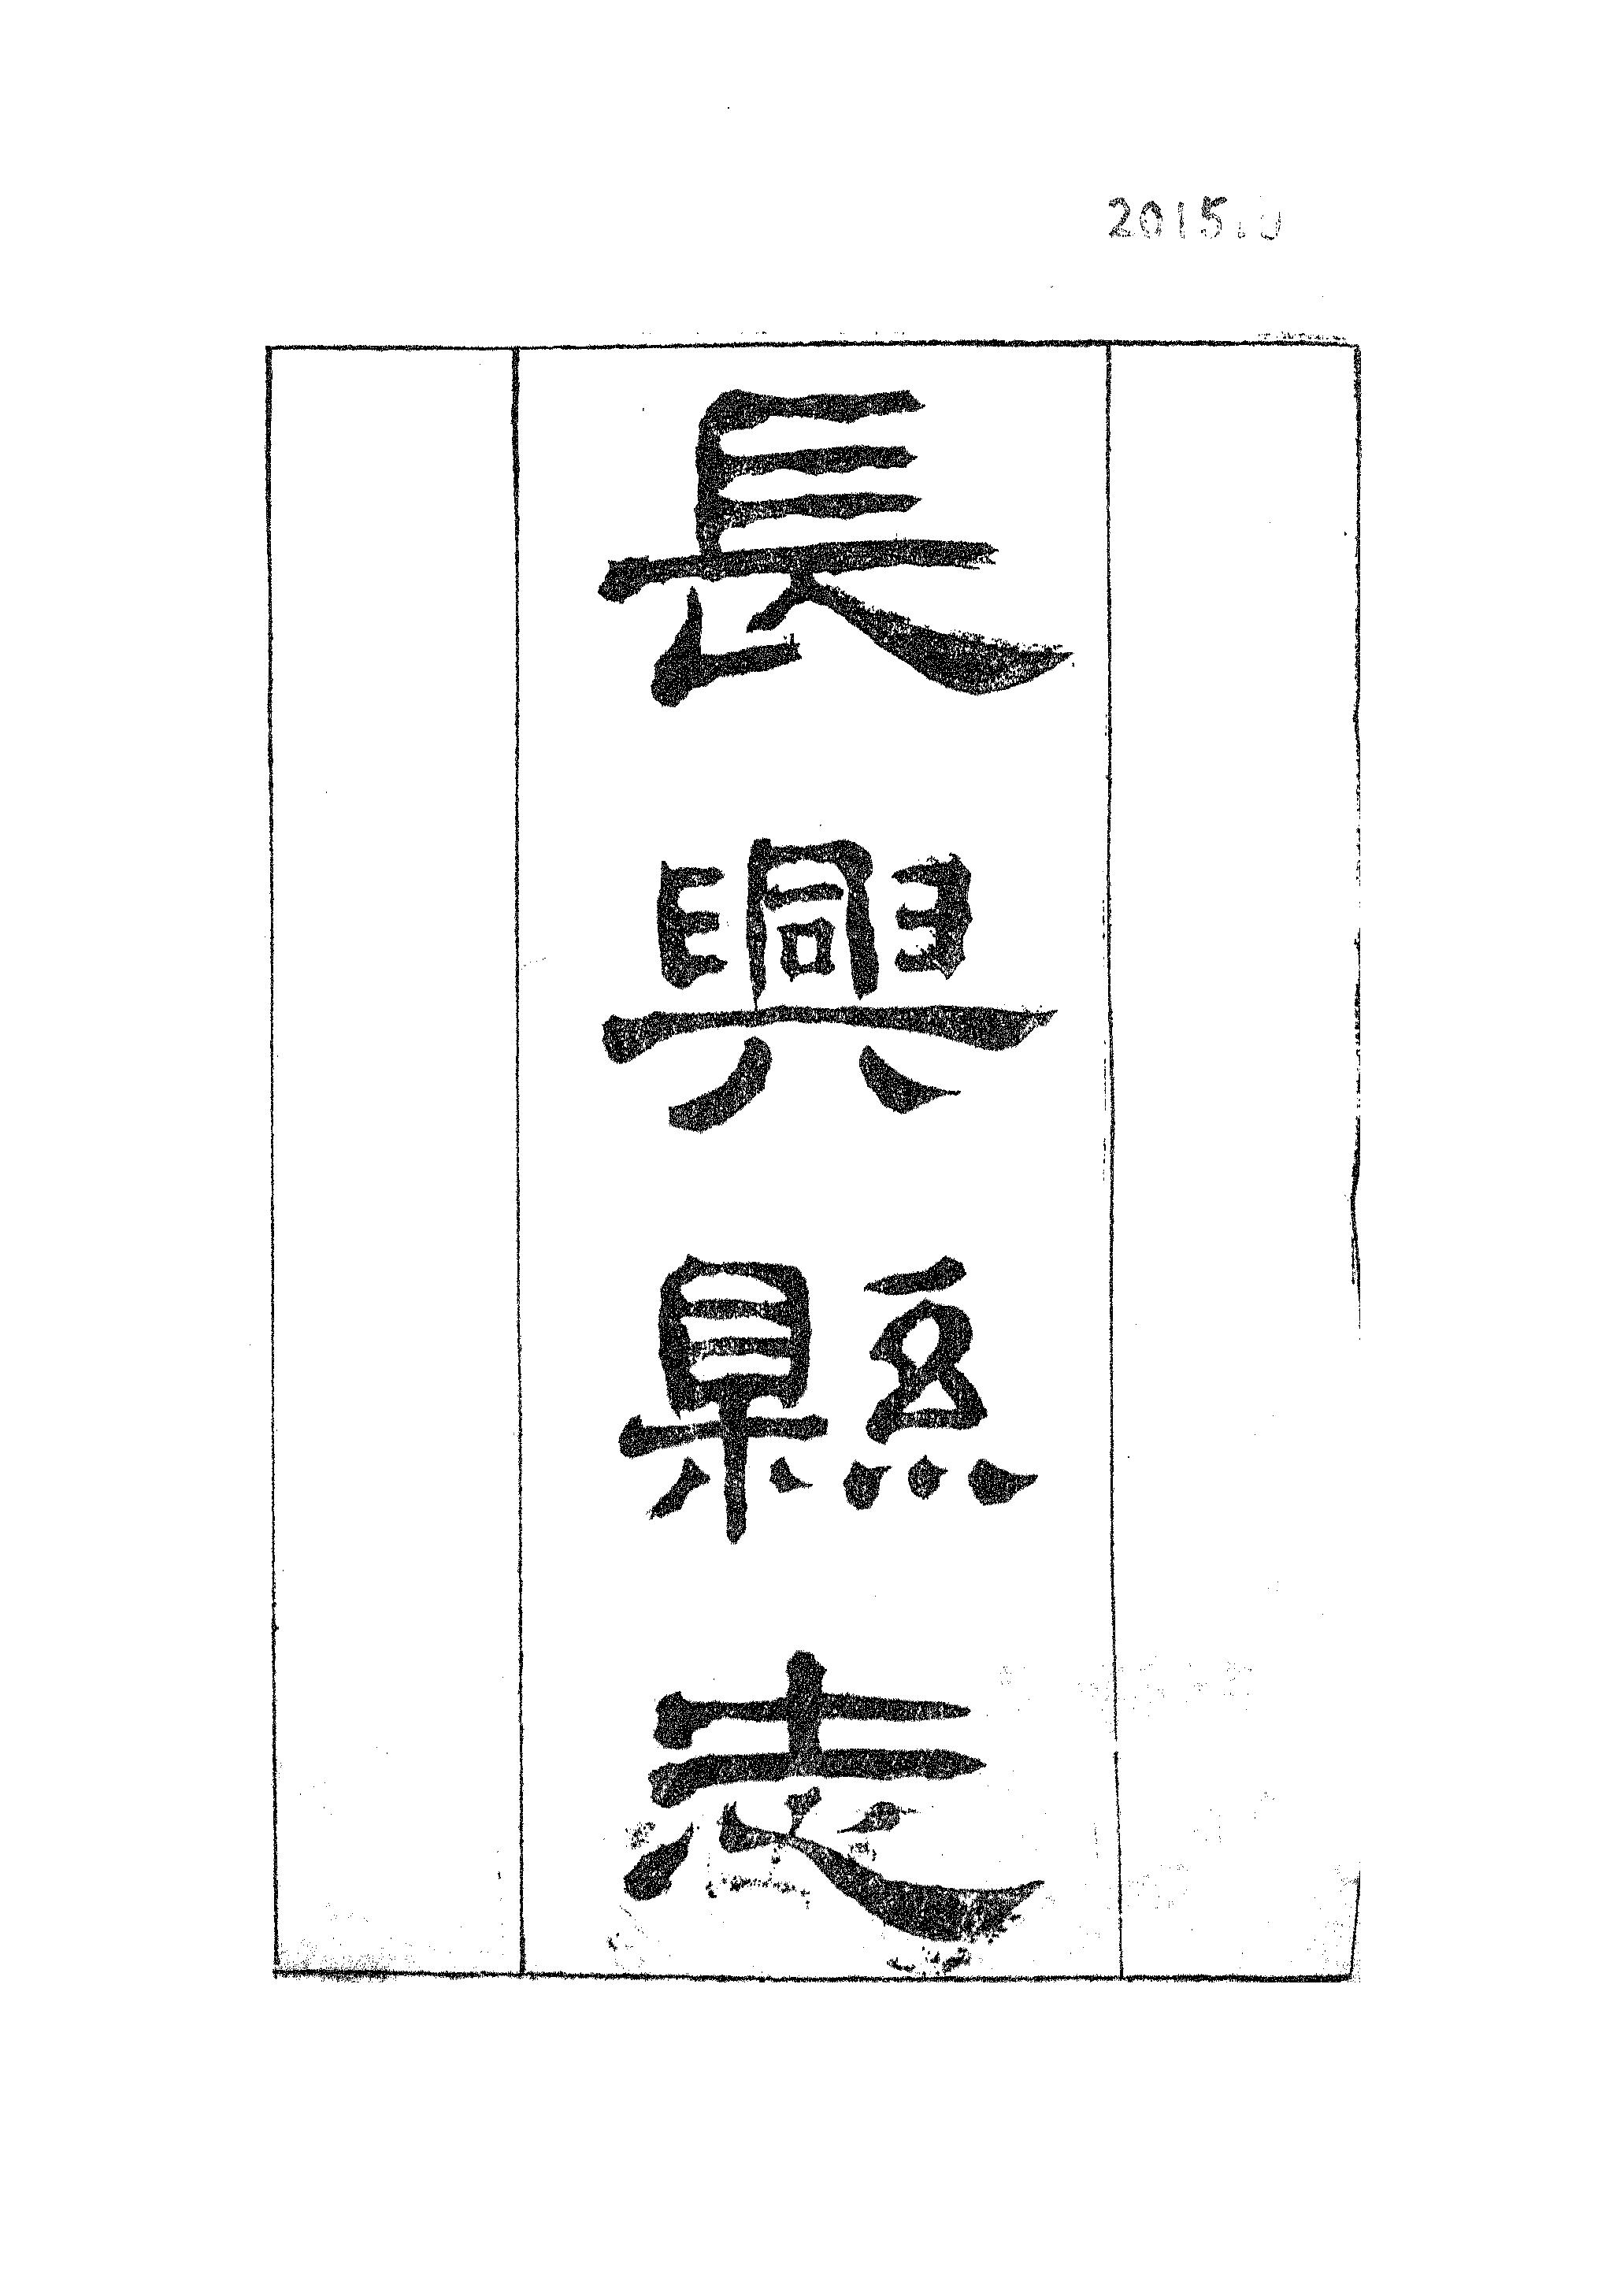 2015.
長興縣志